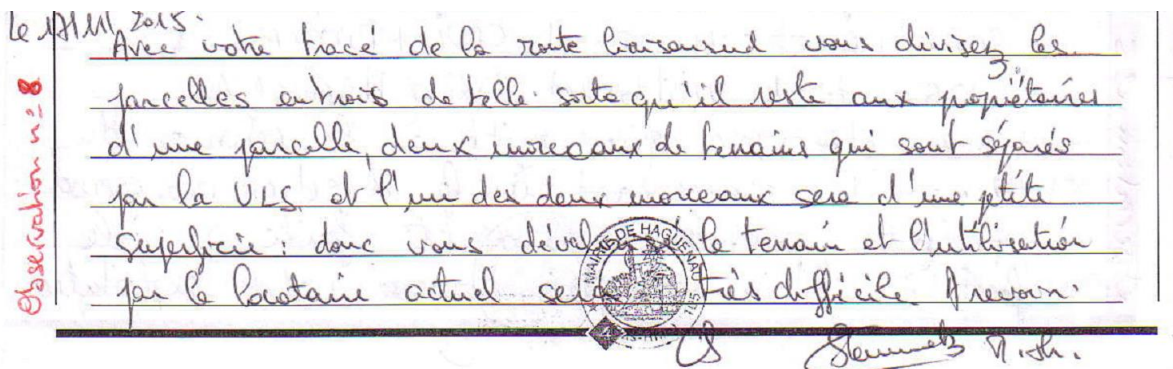 le 17/11/2015.
Avec votre tracé de la route liaison sud vous divisez les
parcelles en trois de telle sorte qu'il reste aux propiétaires
d'une parcelle, deux morceaux de terrains qui sont séparés
par la VLS et l'un des deux morceaux sera d'une petite
superficie : donc vous le terrain et l'utilisation
par le locataire actuel sera très difficile A revoir.
Observation n° 8
MAIRIE DE HAGUENAU